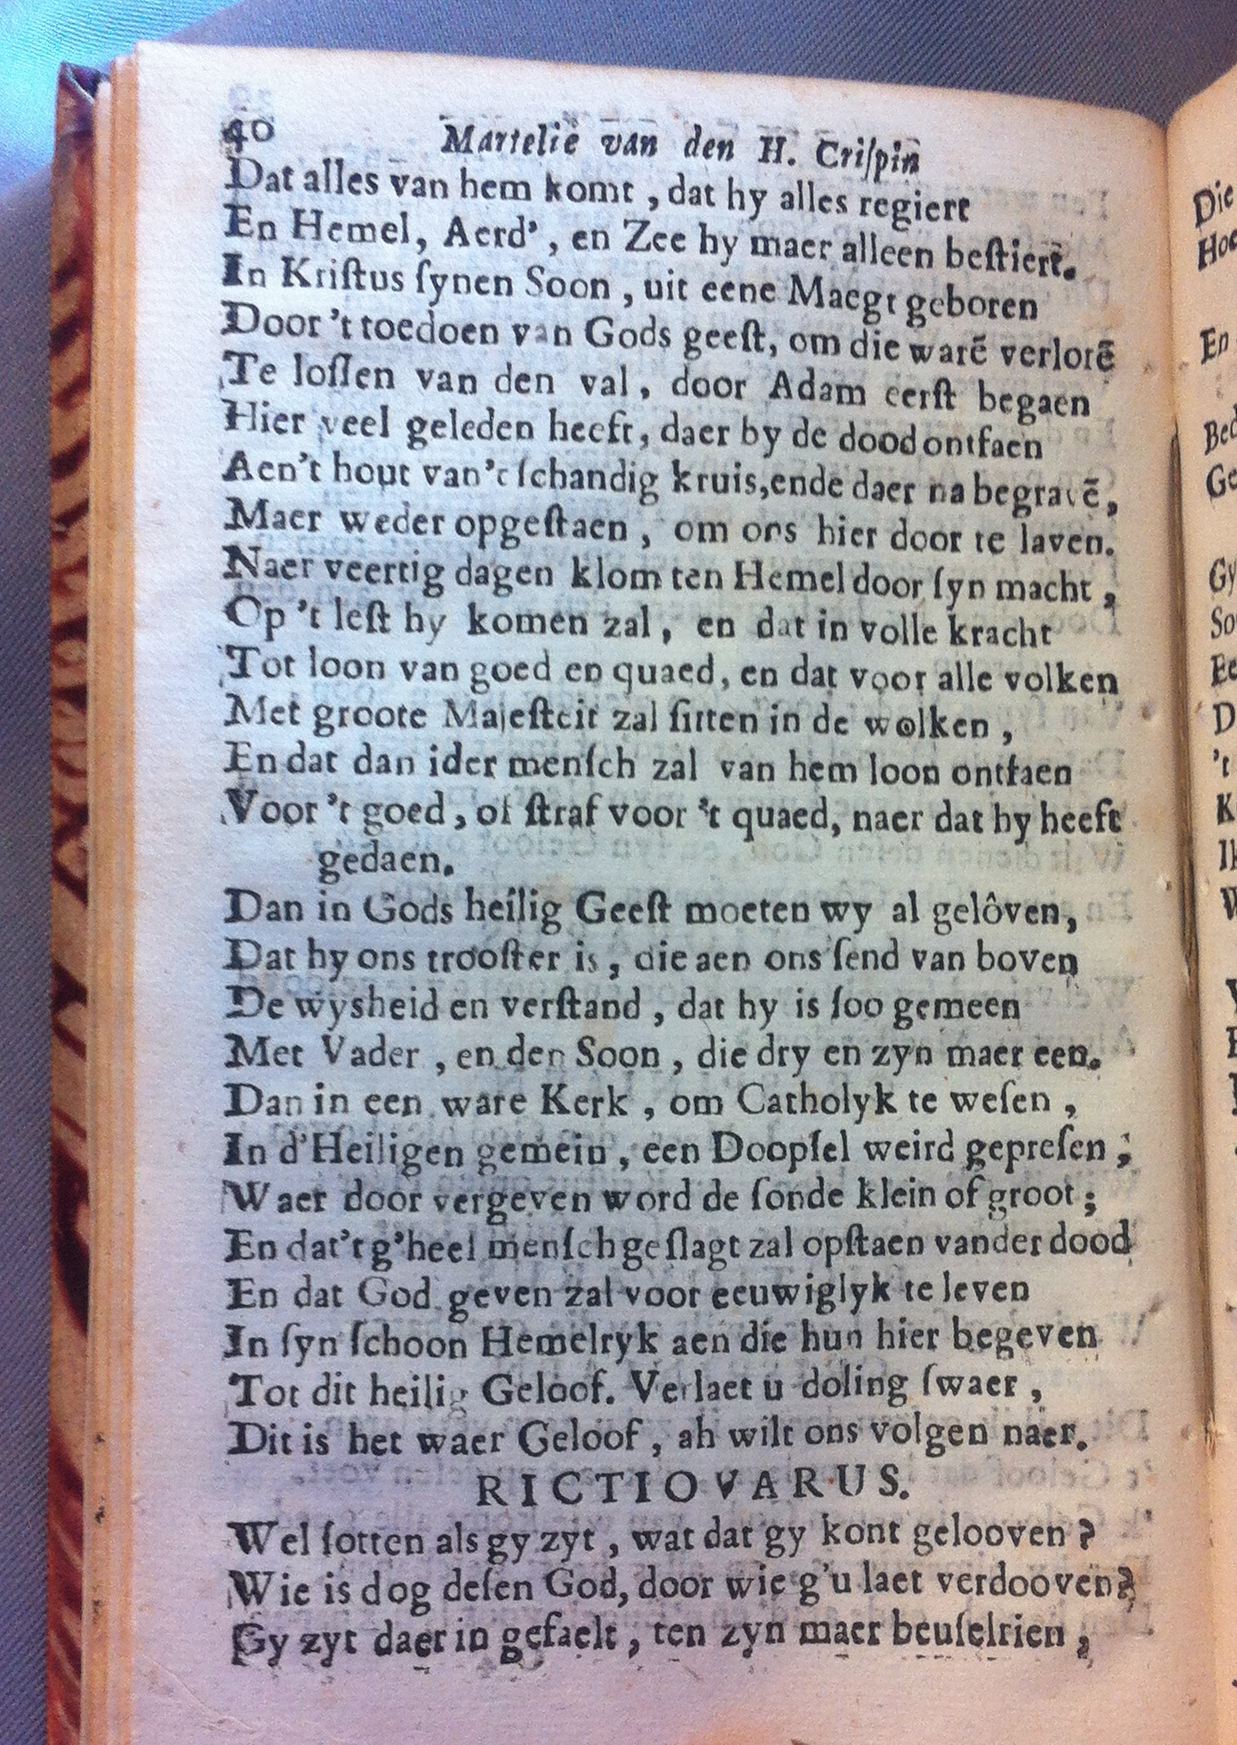 40 Martelie van den H. Criſpin
Dat alles van hem komt , dat hy alles regiert
En Hemel, Aerd’ , en Zee hy maer alleen beſtiert.
In Kriſtus ſynen Soon , uit eene Maegt geboren
Door ’t toedoen van Gods geeſt, om die warē verlorē
Te loſſen van den val, door Adam eerſt begaen
Hier veel geleden heeft, daer by de dood ontfaen
Aen’t hout van’t ſchandig kruis,ende daer na begravē,
Maer weder opgeſtaen , om ons hier door te laven.
Naer veertig dagen klom ten Hemel door ſyn macht ,
Op ’t leſt hy komen zal, en dat in volle kracht
Tot loon van goed en quaed, en dat voor alle volken
Met groote Majeſteit zal ſitten in de wolken ,
En dat dan ider menſch zal van hem loon ontfaen
Voor ’t goed, of ſtraf voor ’t quaed, naer dat hy heeft
gedaen.
Dan in Gods heilig Geeſt moeten wy al gelôven,
Dat hy ons trooſter is, die aen ons ſend van boven
De wysheid en verſtand , dat hy is ſoo gemeen
Met Vader , en den Soon , die dry en zyn maer een.
Dan in een ware Kerk , om Catholyk te weſen ,
In d’Heiligen gemein , een Doopſel weird gepreſen ;
Waer door vergeven word de ſonde klein of groot ;
En dat’t g’heel menſch geſlagt zal opſtaen vander dood
En dat God geven zal voor eeuwiglyk te leven
In ſyn ſchoon Hemelryk aen die hun hier begeven
Tot dit heilig Geloof. Verlaet u doling ſwaer ,
Dit is het waer Geloof , ah wilt ons volgen naer.
RICTIOVARUS.
Wel ſotten als gy zyt , wat dat gy kont gelooven ?
Wie is dog deſen God, door wie g’u laet verdooven?
Gy zyt daer in gefaelt , ten zyn maer beuſelrien ,
Die
Hoe
En
Bed
Ge
Gy
So
Ee
D
’t
K
Ik
W